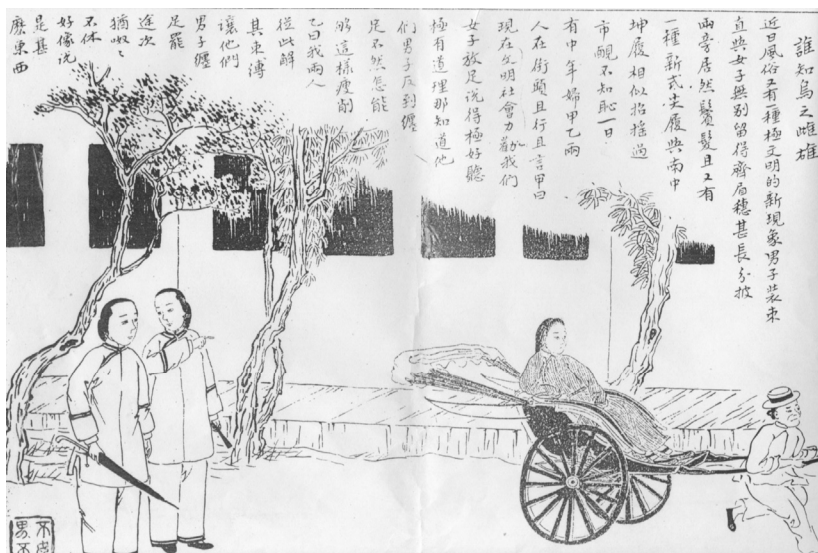 誰知烏之雌雄
近日風俗又有一種極文明的新現象男子裝束
直與女子無別留得齊眉穗甚長分披
兩旁居然鬢髮且又有
一種新式尖履與南中
坤履相似招搖過
市靦不知恥一日
有中年婦甲乙兩
人在街頭且行且言甲曰
現在文明社會力勸我們
女子放足說得極好聽
極有道理那知道他
们男子反到纏
足不然怎能
彀這樣瘦削
乙曰我兩人
從此解
其束縛
讓他們
男子纏
足罷
途次
猶呶〻
不休
好像說
是甚
麽東西